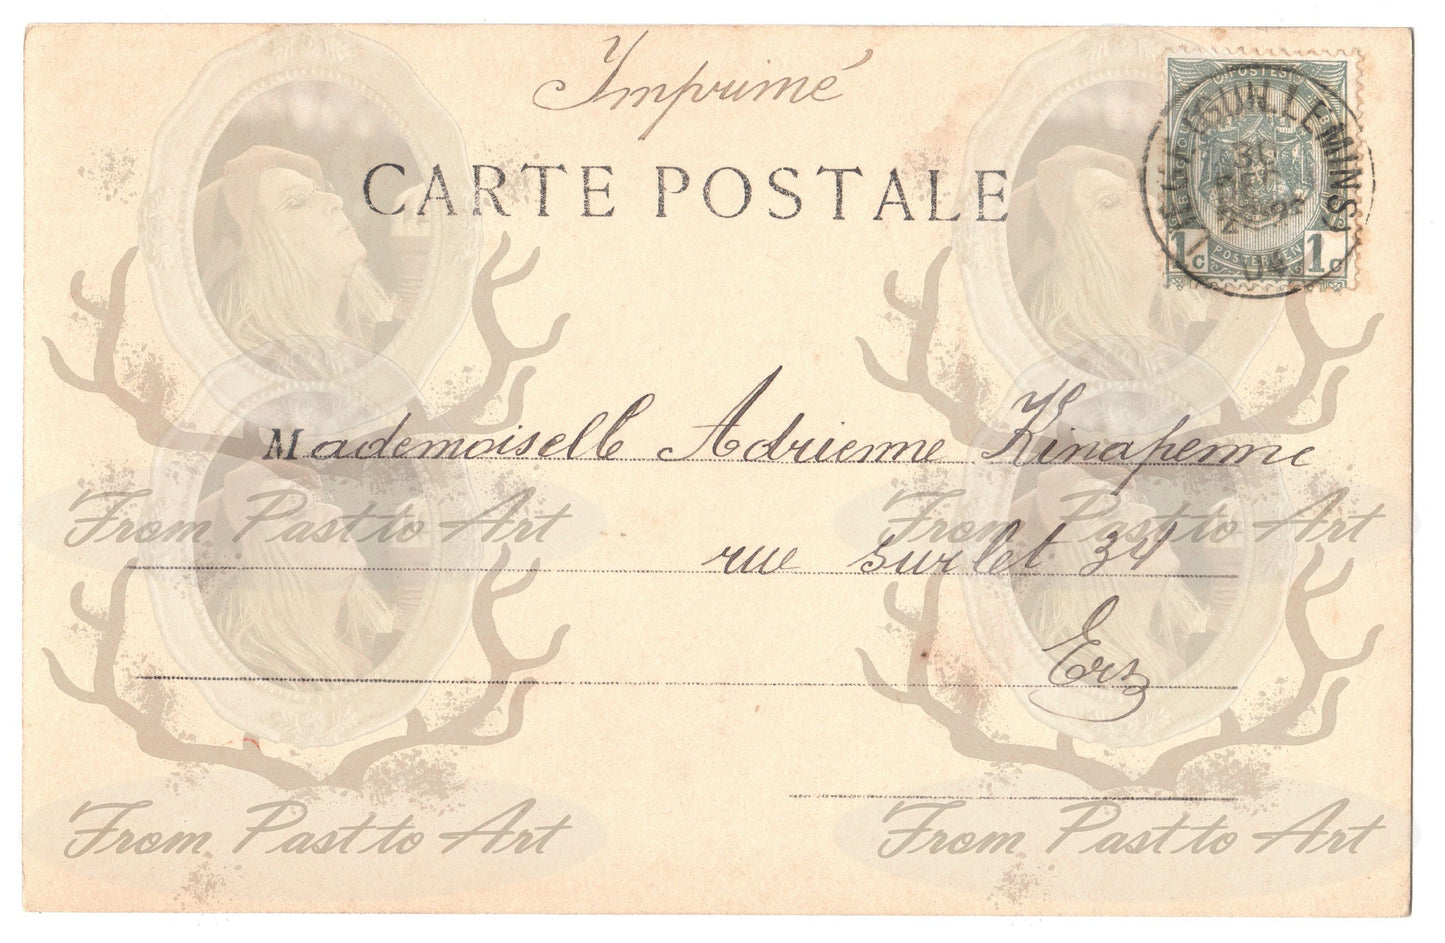 Imprimé
CARTE POSTALE
LIEGE (GUILLEMINS)
31
DEC
04
1c 1c
Mademoiselle Adrienne Kinapenne
rue Surlet 34
From Past to Art From Past to Art
From Past to Art From Past to Art